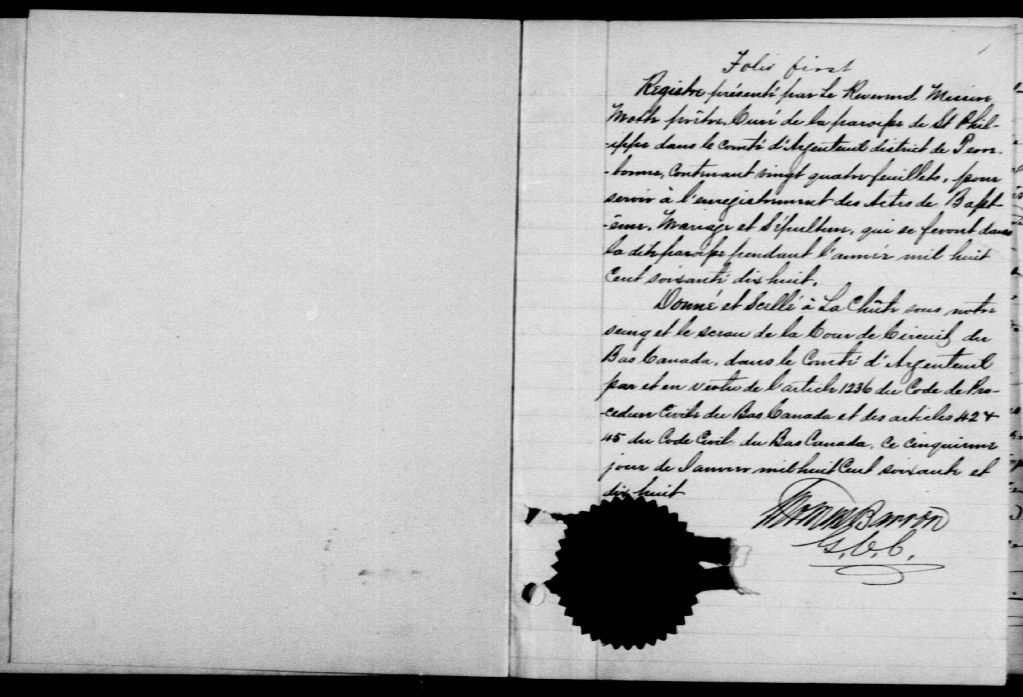 1
Folio first
Registre présenté par Le Reverend Messire
prêtre, Curé de la paroisse de St Phil-
-ippe dans le comté d'Argenteuil district de Terre-
-bonne, contenant vingt quatre feuillets, pour
servir à l'enregistrement des Actes de Bapt-
-ême, Mariage et Sépulture, qui se feront dans
la dite paroisse pendant l'année mil huit
Cent soixante dix huit.
Donné et Scellé à La Chûte sous notre
seing et le sceau de la Cour de Circuit du
Bas Canada, dans le Comté d'Argenteuil
par et en vertu de l'article 1236 du Code de Pro-
-cedure Civile du Bas Canada et des articles 42 &
45 du Code Civil du Bas Canada, ce cinquieme
jour de Janvier mil huit Cent soixante et
dix huit
Barron
G.C.C.